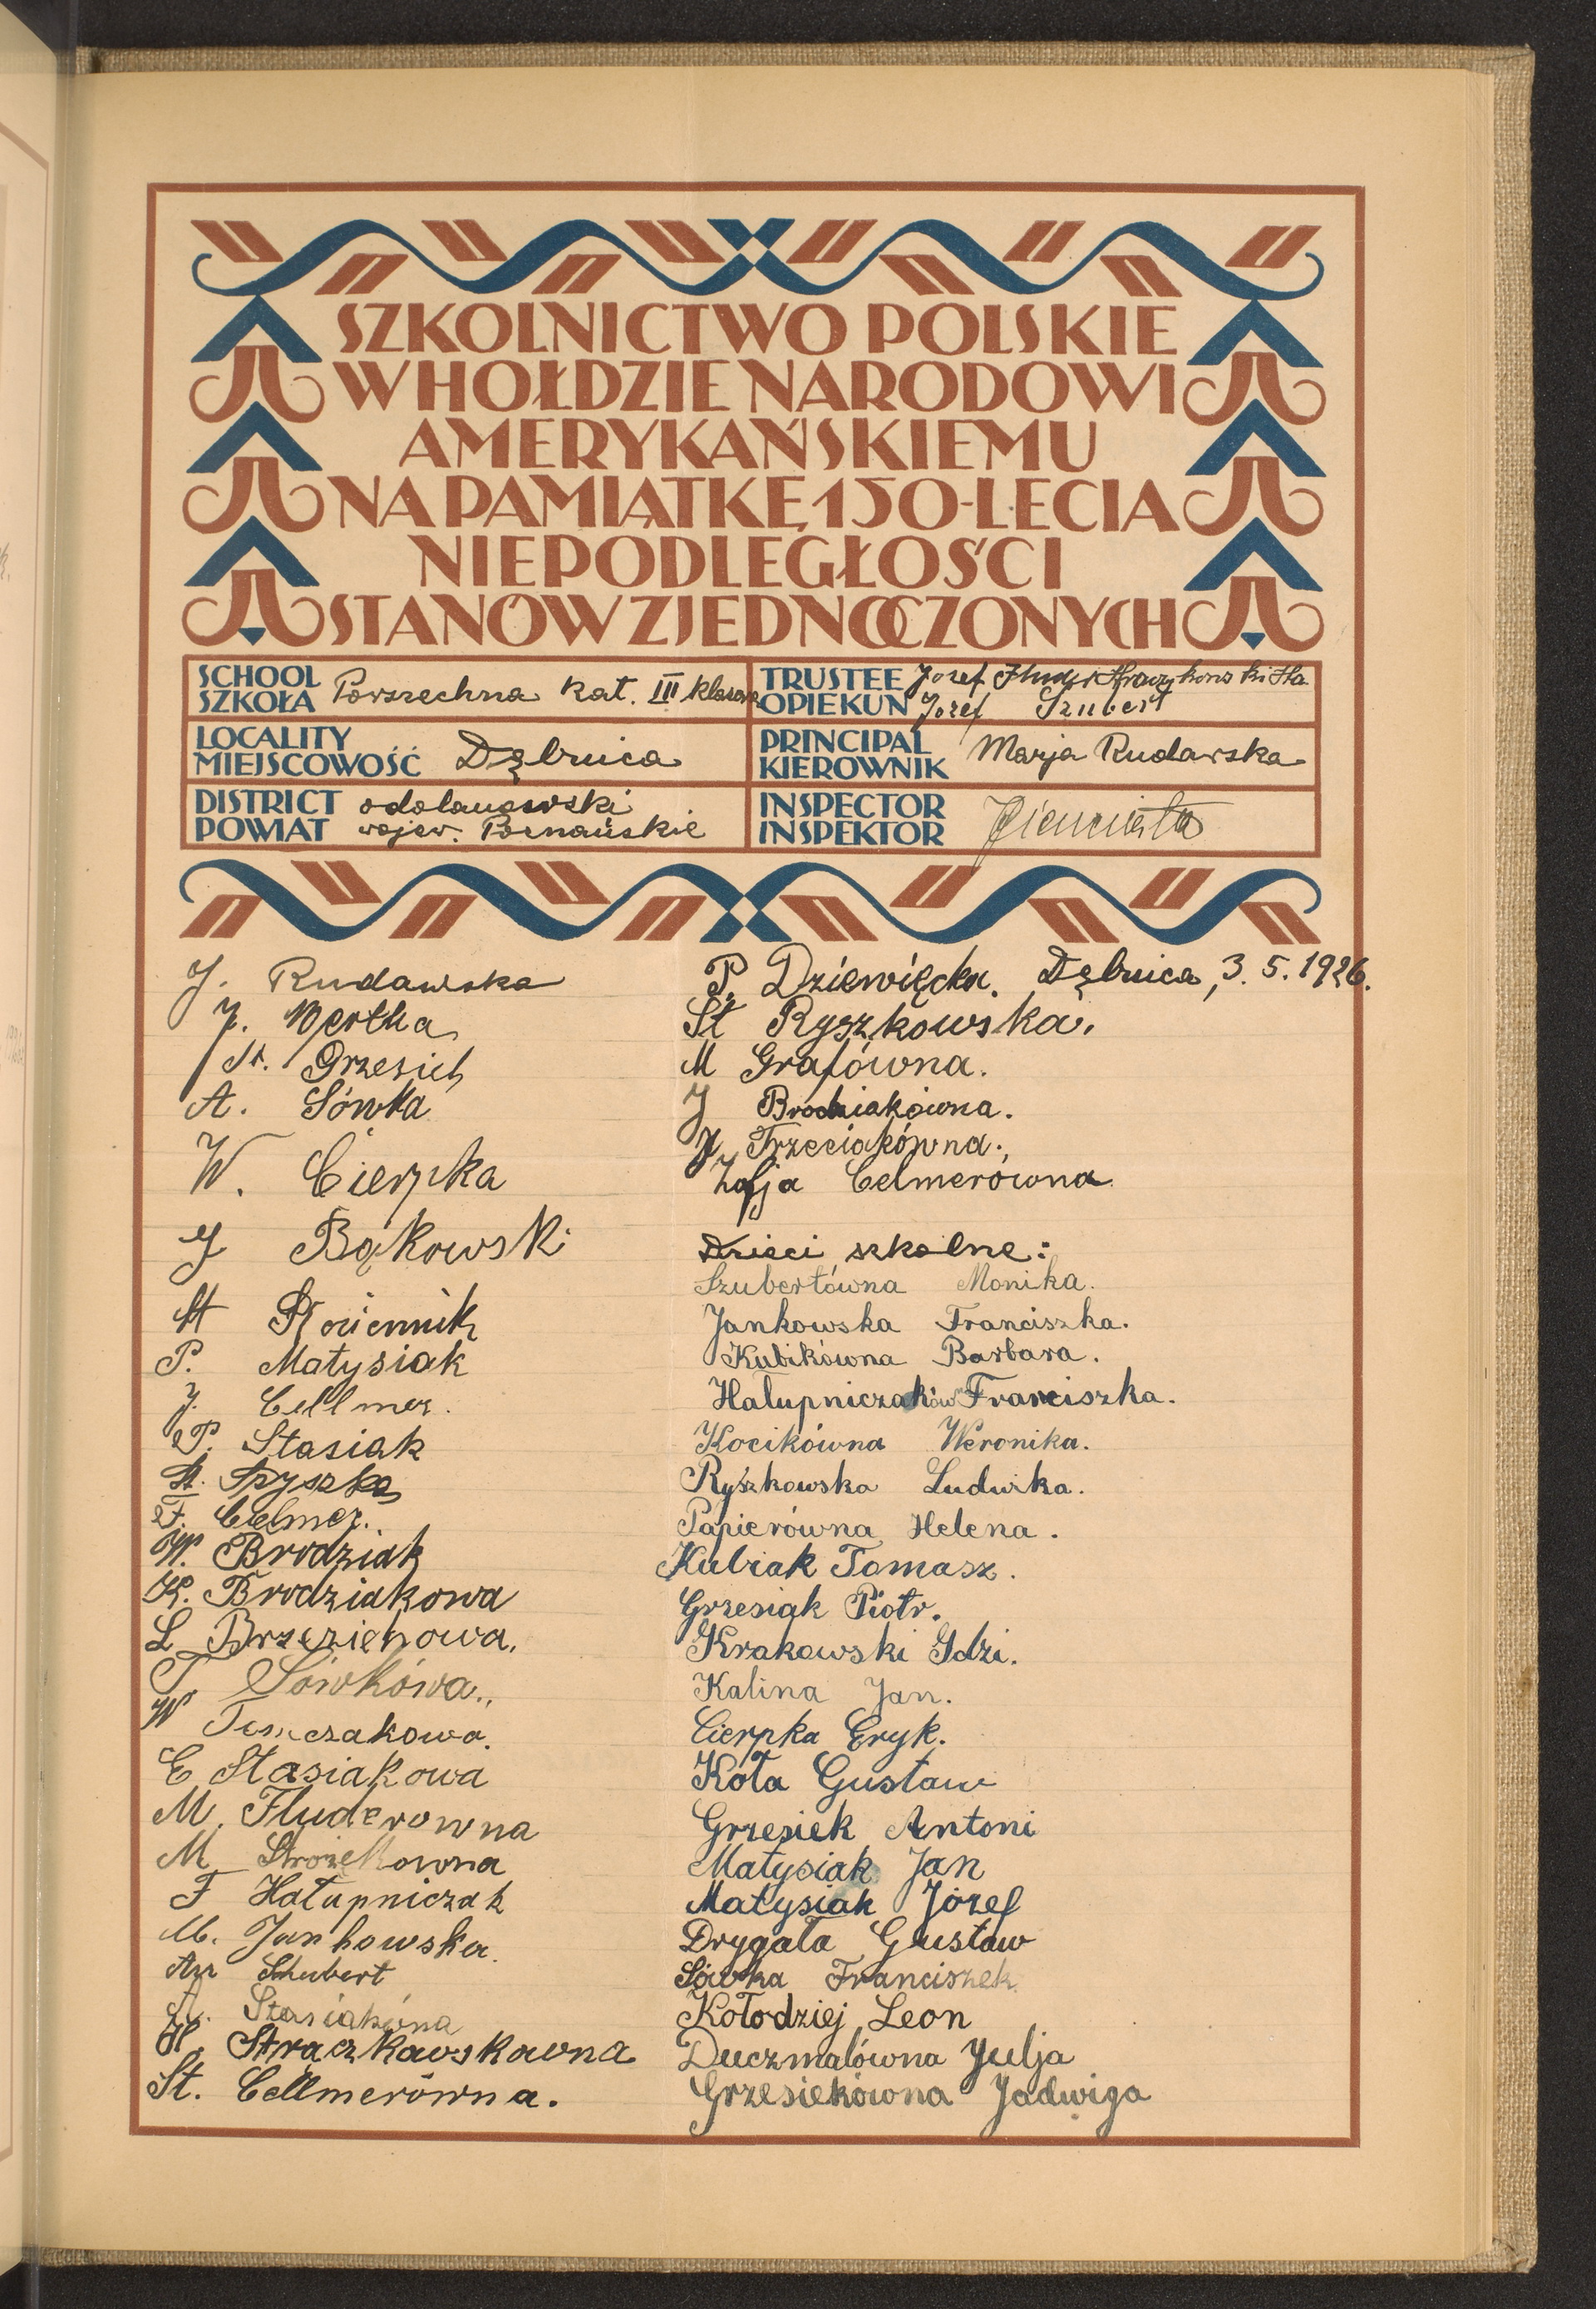 SZKOLNICTWO POLSKIE
W HOŁDZIE NARODOWI
AMERYKAŃSKIEMU
NA PAMIĄTKĘ 150-LECIA
NIEPODLEGŁOŚCI
STANÓW ZJEDNOCZONYCH
SCHOOL
SZKOŁA
Powszechna kat. III klasowa
TRUSTEE
OPIEKUN
Jozef
Jozef Szubert
LOCALITY
MIEJSCOWOŚĆ
Dębnica
PRINCIPAL
KIEROWNIK
Marja Rudawska
DISTRICT
POWIAT
odolanowski
wojew. Poznańskie
INSPECTOR
INSPEKTOR
J. Rudawska
J. Wertha
St. Grzesich
A. Sówka
W. Cierpka
J Bąkowski
St
P. Matysiak
J. Cellmer.
P. Stasiak
St. Spyszka
F. Celmer.
W. Brodziak
K. Brodziakowa
L Brzezichowa.
T Sówkówa.,
W Tomczakowa.
E Stasiakowa
M. Fluderowna
M Strozekowna
F Hałupniczak
M. Jankowska.
An Schubert
A. Stasiakówna
H. Strączkowskowna
St. Cellmerówna.
P. Dziewięcka. Dębnica, 3. 5. 1926.
St Ryszkowska.
M Grafówna.
J Brodziakówna.
J Trzeciakówna.,
Zofja Celmerówna
Dzieci szkolne:
Szubertówna Monika.
Jankowska Franciszka.
Kubikówna Barbara.
Hałupniczaków Franciszka.
Kocikówna Weronika.
Ryszkowska Ludwika.
Papierówna Helena.
Kubiak Tomasz.
Grzesiak Piotr.
Krakowski Idzi.
Kalina Jan.
Cierpka Eryk.
Kota Gustaw
Grzesiek Antoni
Matysiak Jan
Matysiak Józef
Drygała Gustaw
Sówka Franciszek
Kołodziej Leon
Duczmalówna Julja
Grzesiekówna Jadwiga